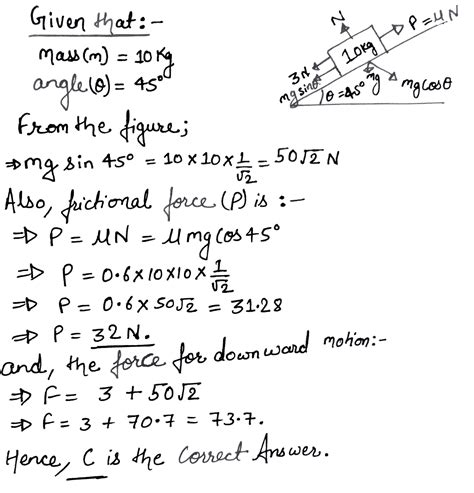 Given that:-
mass(m) = 10 Kg
angle(θ) = 45°
N
P = μN
10kg
3N
mg sinθ
θ = 45°
mg
mg cosθ
From the figure;
⇒ mg sin 45° = 10 × 10 × 1/√2 = 50√2 N
Also, frictional force (P) is :-
⇒ P = μN = μmg cos 45°
⇒ P = 0.6 × 10 × 10 × 1/√2
⇒ P = 0.6 × 50√2 = 31.28
⇒ P = 32 N.
and, the force for downward motion:-
⇒ F = 3 + 50√2
⇒ F = 3 + 70.7 = 73.7.
Hence, C is the correct Answer.